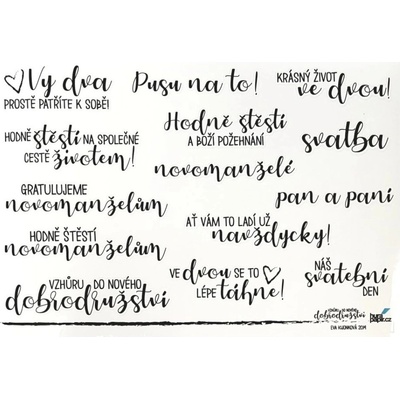 Vy dva
PROSTĚ PATŘÍTE K SOBĚ!
Pusu na to!
KRÁSNÝ ŽIVOT
ve dvou!
HODNĚ štěstí NA SPOLEČNÉ
CESTĚ životem!
Hodně štěstí
A BOŽÍ POŽEHNÁNÍ
svatba
novomanželé
GRATULUJEME
novomanželům
pan a paní
HODNĚ ŠTĚSTÍ
novomanželům
AŤ VÁM TO LADÍ UŽ
navždycky!
VZHŮRU DO NOVÉHO
dobrodružství
VE dvou SE TO
LÉPE táhne!
NÁŠ
svatební
DEN
VZHŮRU DO NOVÉHO
dobrodružství